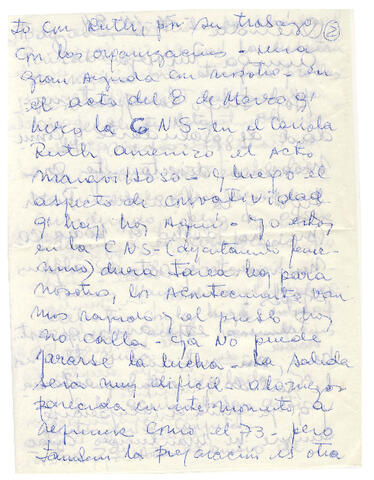 to con Ruth, por su trabajo (2)
con los organizaciones - una
gran ayuda con nosotro - en
el acto del 8 de Marzo q'
hizo la CNS - en el Cariola
Ruth amenizo el Acto
maravilloso - q luego el
aspecto de combatividad
q' hay hoy Aqui - yo estoy
en la CNS - (deptamento feme-
nino) dura tarea hoy para
nosotro, los Acontecimiento van
mas rapido y el pueblo hoy
no calla - ya NO puede
pararse la lucha - la salida
será muy dificil a lo mejor
parecida en este momento a
como el 73 - pero
tambien la preparacion es otra